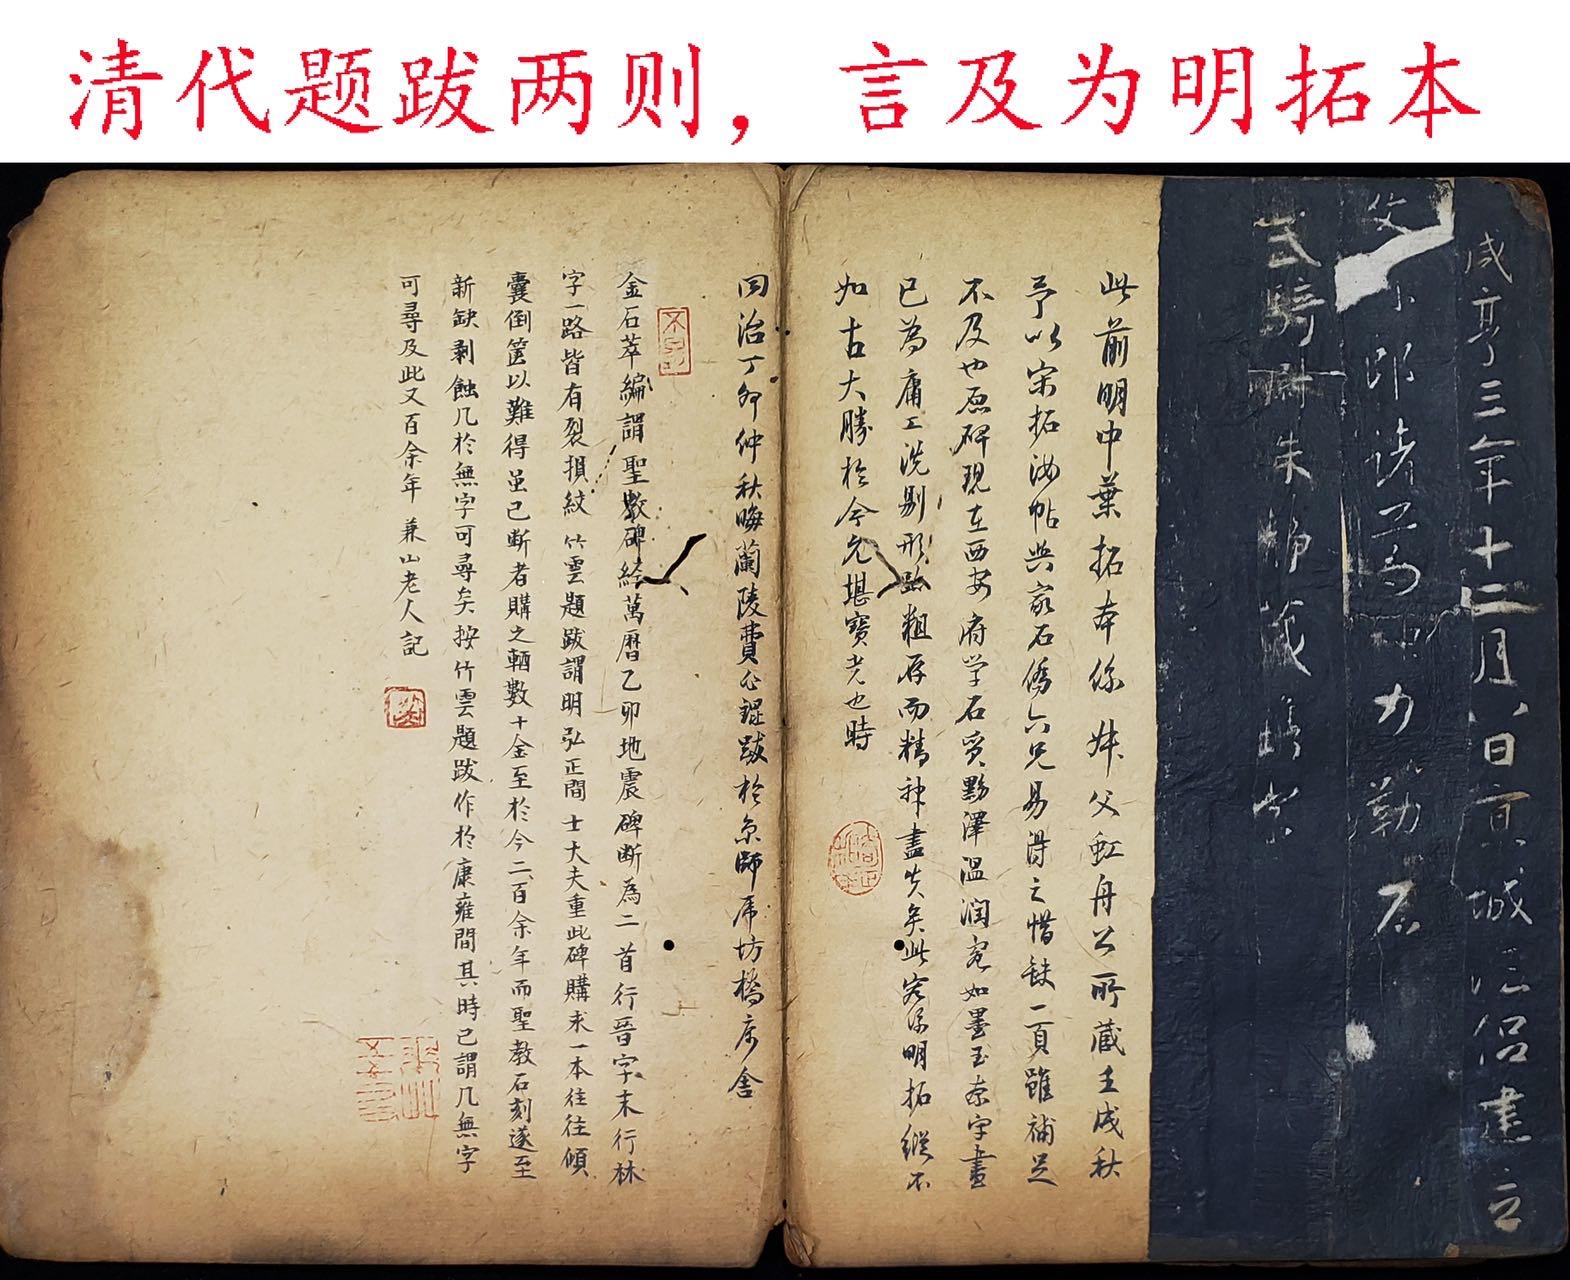 清代题跋两则，言及为明拓本
咸亨三年十二月八日京城法侣建立
文林郎诸葛神力勒石
武骑尉朱静藏镌字
此前明中葉拓本係妹父虹舟公所藏壬戌秋
予以宋拓汝帖與家石僑六兄易得之惜缺一頁雖補足
不及也原碑現在西安府学石質黝澤温潤宛如墨玉奈字畫
已為庸工洗剔形跡粗存而精神盡失矣此宻係明拓縱不
如古大勝於今允堪寶老也時
同治丁卯仲秋晦蘭陵費公錕跋於京師虎坊橋序舍
金石萃編謂聖教碑經萬曆乙卯地震碑断為二首行晉字末行林
字一路皆有裂損紋竹雲題跋謂明弘正間士大夫重此碑購求一本往往傾
囊倒篋以難得虽已断者購之輒數十金至於今二百余年而聖教石刻遂至
新缺剥蝕几於無字可尋矣按竹雲題跋作於康雍間其時已謂几無字
可尋及此又百余年 兼山老人記